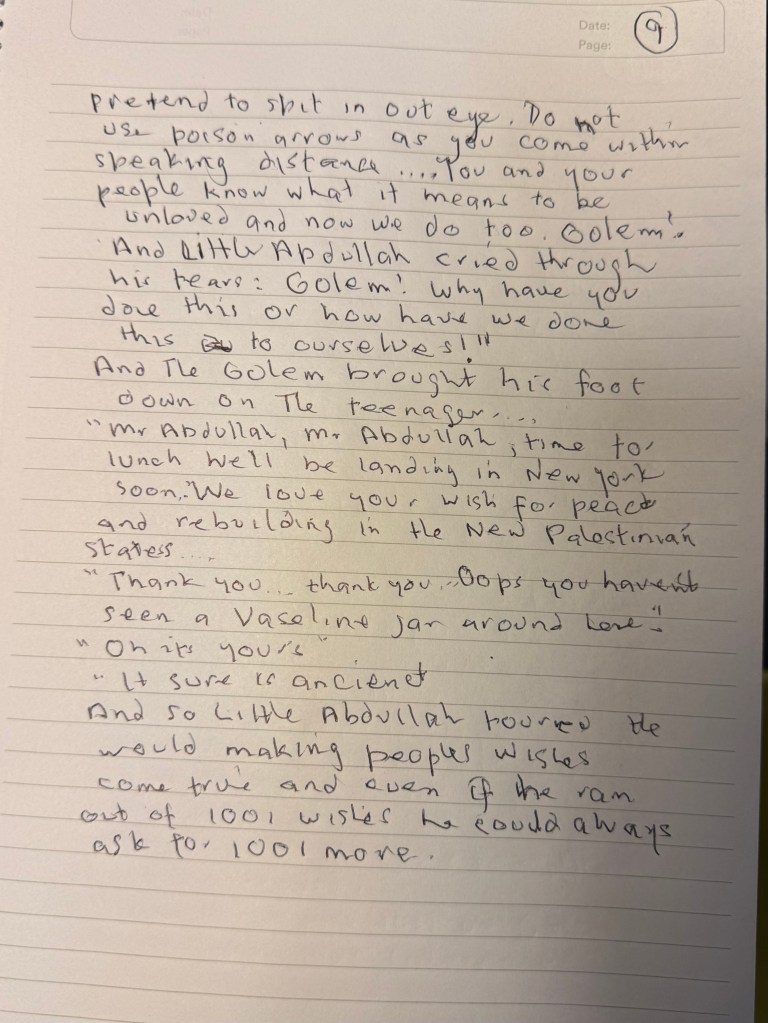 Date:
Page:
9
pretend to spit in out eye. Do not
use poison arrows as you come within
speaking distance .... You and your
people know what it means to be
unloved and now we do too. Golem!
And Little Abdullah cried through
his tears: Golem! Why have you
done this or how have we done
this to ourselves!"
And The Golem brought his foot
down on The teenager....
"Mr Abdullah, Mr Abdullah, time for
lunch we'll be landing in New York
soon. We love your wish for peace
and rebuilding in the New Palestinian
States ....
"Thank you... thank you... Oops you havent
seen a Vaseline jar around here"
"Oh its yours"
"It sure is ancienet
And so Little Abdullah toured the
would making peoples wishes
come true and even if he ran
out of 1001 wishes he could always
ask for 1001 more.